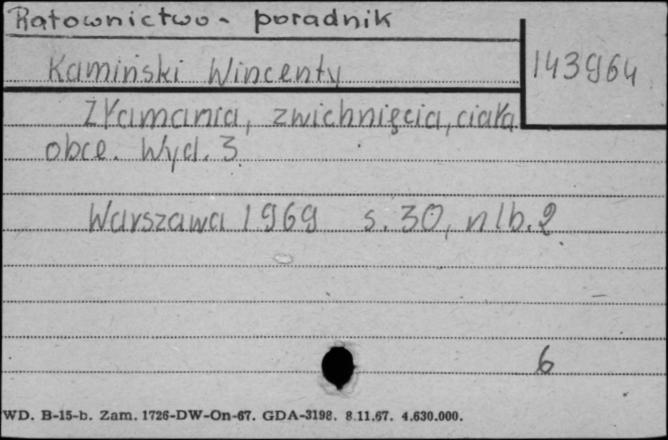 Ratownictwo - poradnik
Kamiński Wincenty
143964
Złamania, zwichnięcia, ciała
obce. Wyd. 3
Warszawa 1969 s. 30, nlb. 2
6
WD. B-15-b. Zam. 1726-DW-On-67. GDA-3198. 8.11.67. 4.630.000.